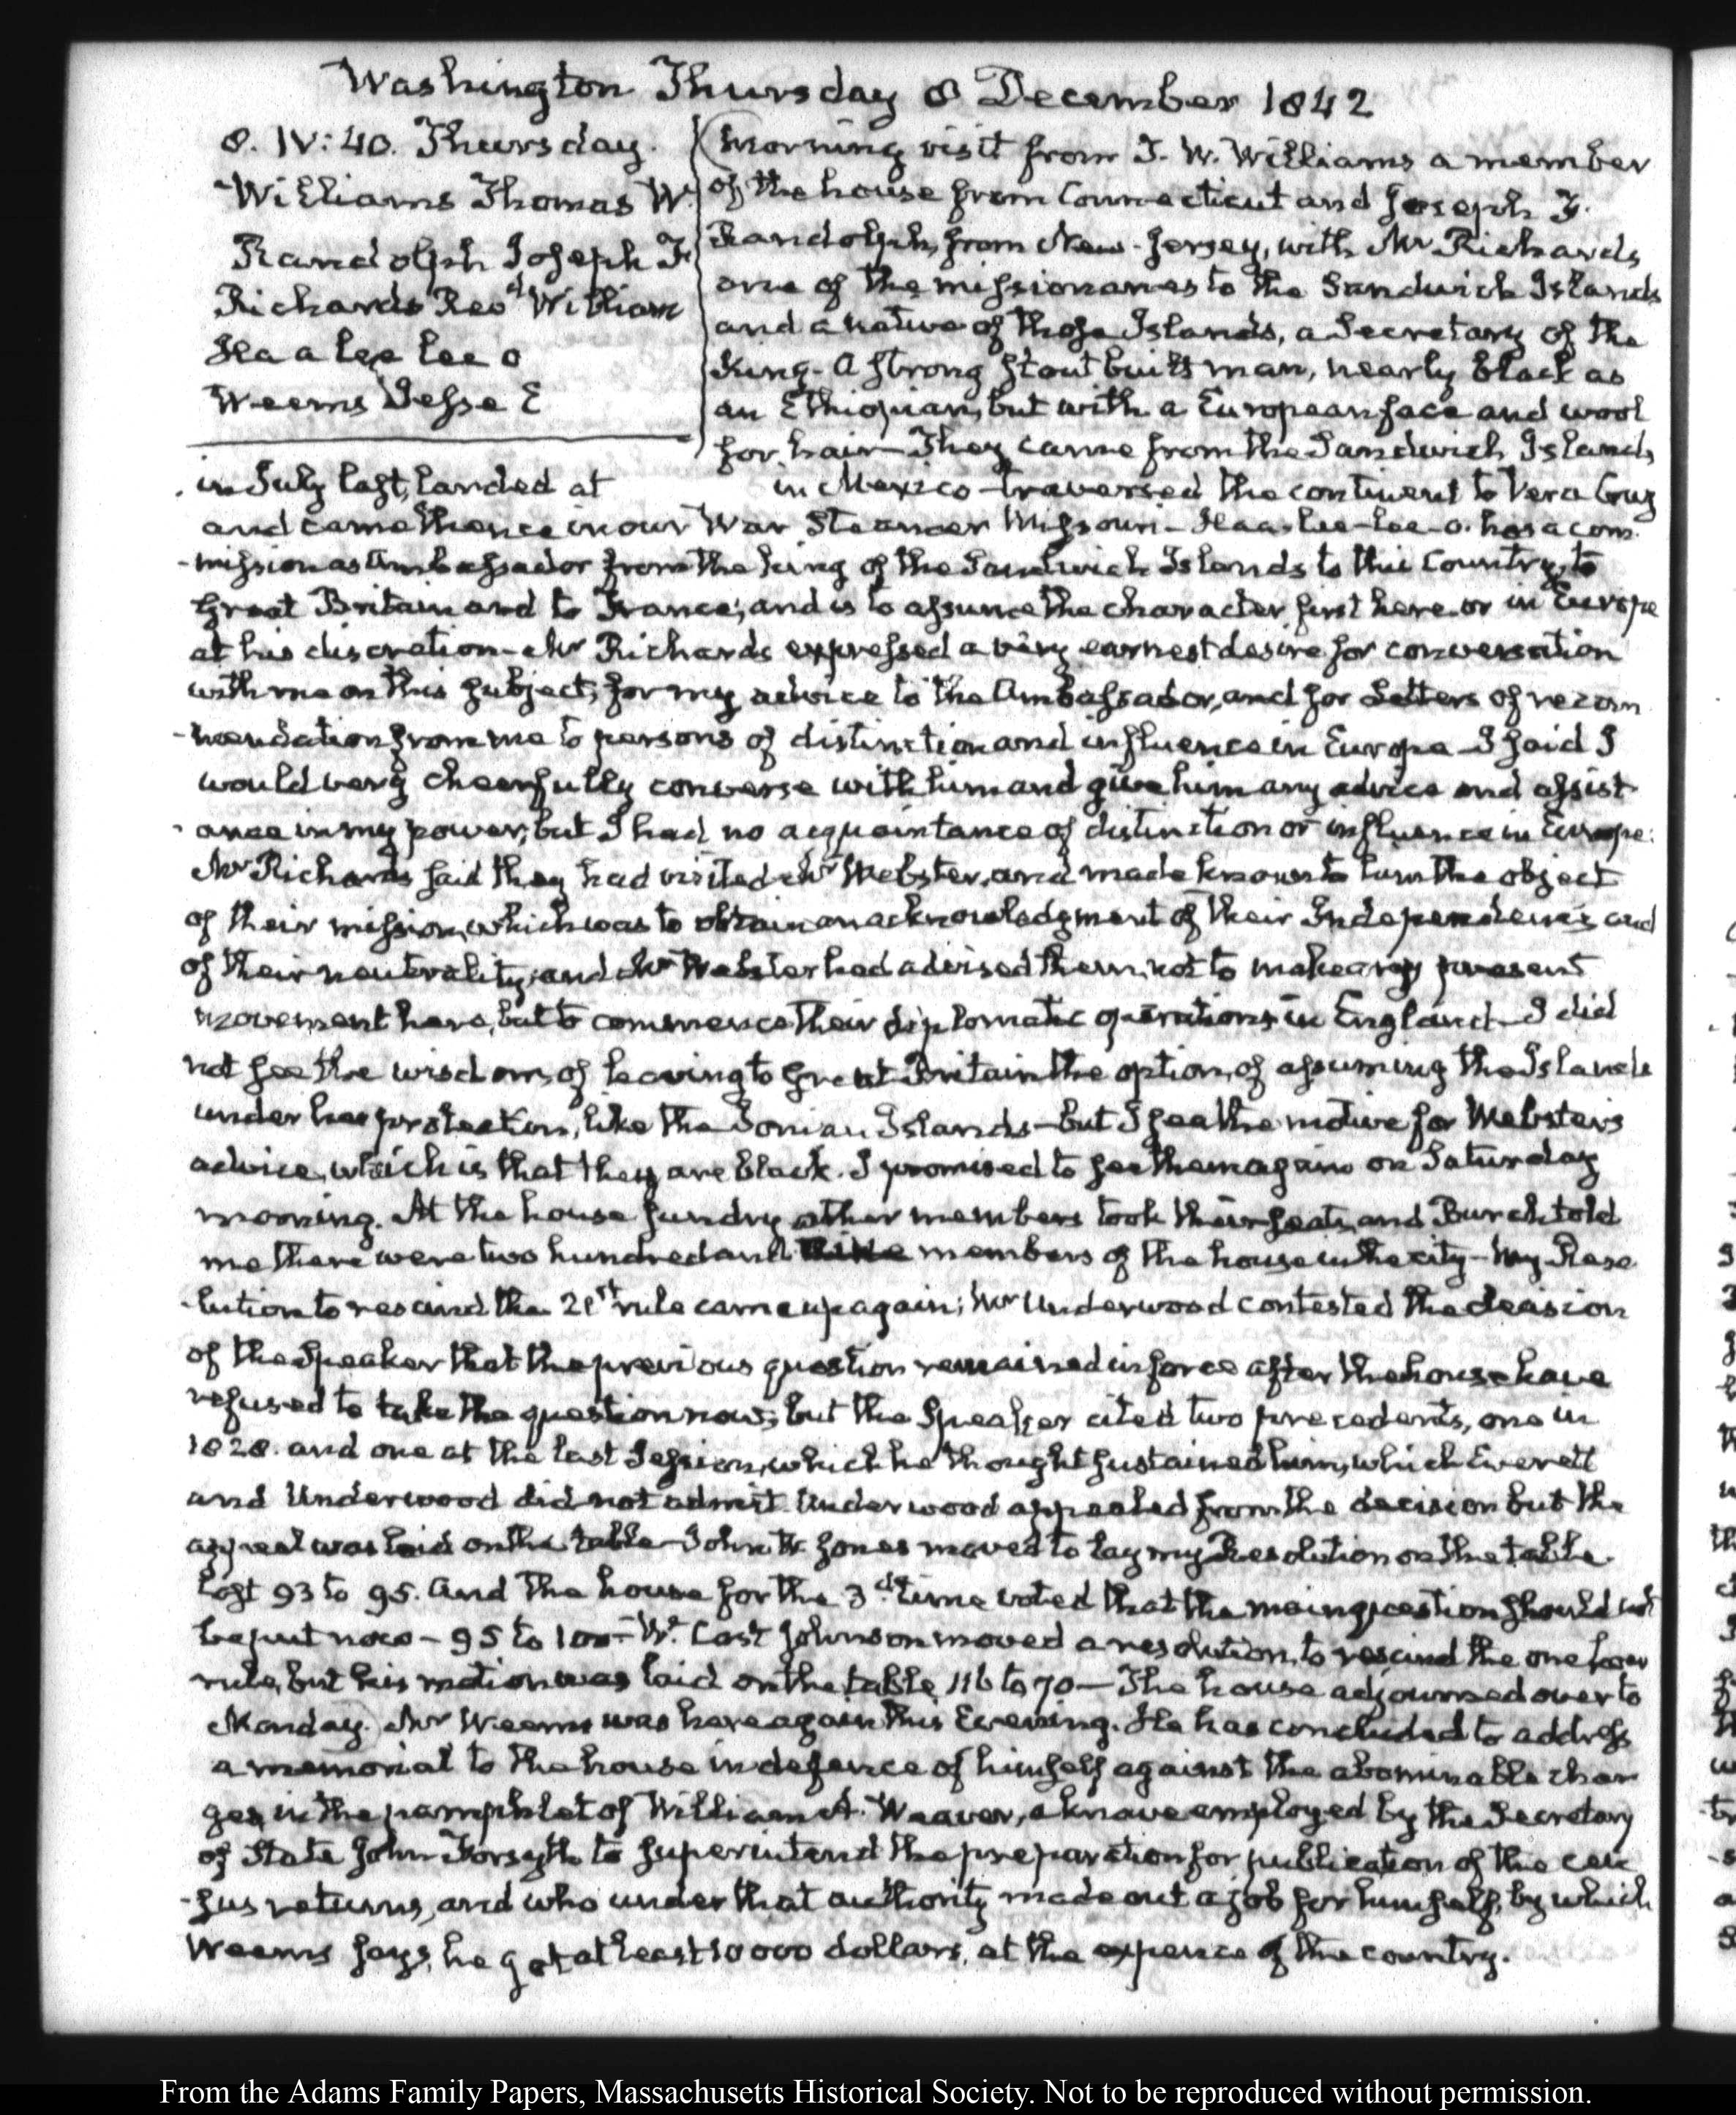 Washington Thursday 8 December 1842
8. IV:40. Thursday.
Williams Thomas W.
Randolph Joseph F
Richards Revd. William
Haa lee lee o
Weems Jesse E
Morning visit from T. W. Williams a member
of the house from Connecticut and Joseph F.
Randolph, from New-Jersey, with Mr Richards
one of the missionaries to the Sandwich Islands
and a native of those Islands, a Secretary of the
King- A strong stout built man, nearly black as
an Ethiopian, but with a European face and wool
for hair- They came from the Sandwich Islands
in July last, landed at in Mexico- traversed the continent to Vera Cruz
and came thence in our War Steamer Missouri- Haa-lee-lee-o. has a com-
-mission as Ambassador from the King of the Sandwich Islands to this Country, to
Great Britain and to France; and is to assume the character first here or in Europe
at his discretion- Mr Richards expressed a very earnest desire for conversation
with me on this subject, for my advice to the Ambassador, and for Letters of recom
-mendation from me to persons of distinction and influence in Europe- I said I
would very cheerfully converse with him and give him any advice and assist-
-ance in my power; but I had no acquaintance of distinction or influence in Europe.
Mr Richards said they had visited Mr Webster, and made known to him the object
of their mission, which was to obtain an acknowledgment of their Independence and
of their neutrality; and Mr Webster had advised them, not to make any present
movement here, but to commence their diplomatic operations in England- I did
not see the wisdom, of leaving to Great Britain the option, of assuming the Islands
under her protection, like the Ionian Islands- but I see the motive for Webster's
advice, which is that they are black. I promised to see them again on Saturday
morning. At the house sundry other members took their seats, and Burch told
me there were two hundred and members of the house in the city- My Reso
-lution to rescind the 21st rule came up again; Mr Underwood contested the decision
of the Speaker that the previous question remained in force after the house have
refused to take the question now; but the Speaker cited two precedents, one in
1828. and one at the last Session, which he thought sustained him, which Everett
and Underwood did not admit. Underwood appealed from the decision but the
appeal was laid on the table- John W. Jones moved to lay my Resolution on the table.
lost 93 to 95. And the house for the 3d. time voted that the main question should not
be put now- 95 to 100- W. Cost Johnson moved a resolution, to rescind the one hour
rule, but his motion was laid on the table 116 to 70- The house adjourned over to
Monday. Mr Weems was here again this Evening. He has concluded to address
a memorial to the house in defence of himself against the abominable char
ges, in the pamphlet of William A. Weaver, a knave employed by the Secretary
of State John Forsyth to superintend the preparation for publication of the cen
-sus returns, and who under that authority made out a job for himself, by which
Weems says, he got at least 10000 dollars, at the expence of the country.
From the Adams Family Papers, Massachusetts Historical Society. Not to be reproduced without permission.